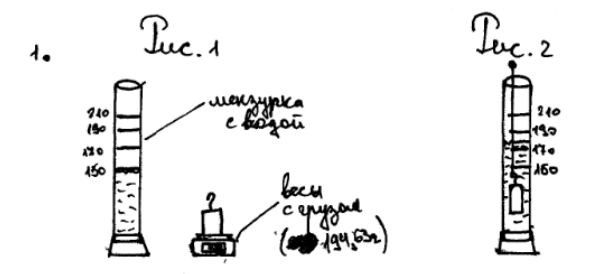 1.
Рис. 1
210
190
170
150
мензурка
с водой
весы
с грузом
( 194,63г)
Рис. 2
210
190
170
150